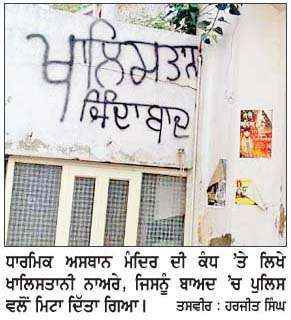 ਖਾਲਿਸਤਾਨ
ਜ਼ਿੰਦਾਬਾਦ
ਧਾਰਮਿਕ ਅਸਥਾਨ ਮੰਦਿਰ ਦੀ ਕੰਧ 'ਤੇ ਲਿਖੇ
ਖਾਲਿਸਤਾਨੀ ਨਾਅਰੇ, ਜਿਸਨੂੰ ਬਾਅਦ 'ਚ ਪੁਲਿਸ
ਵਲੋਂ ਮਿਟਾ ਦਿੱਤਾ ਗਿਆ। ਤਸਵੀਰ : ਹਰਜੀਤ ਸਿੰਘ